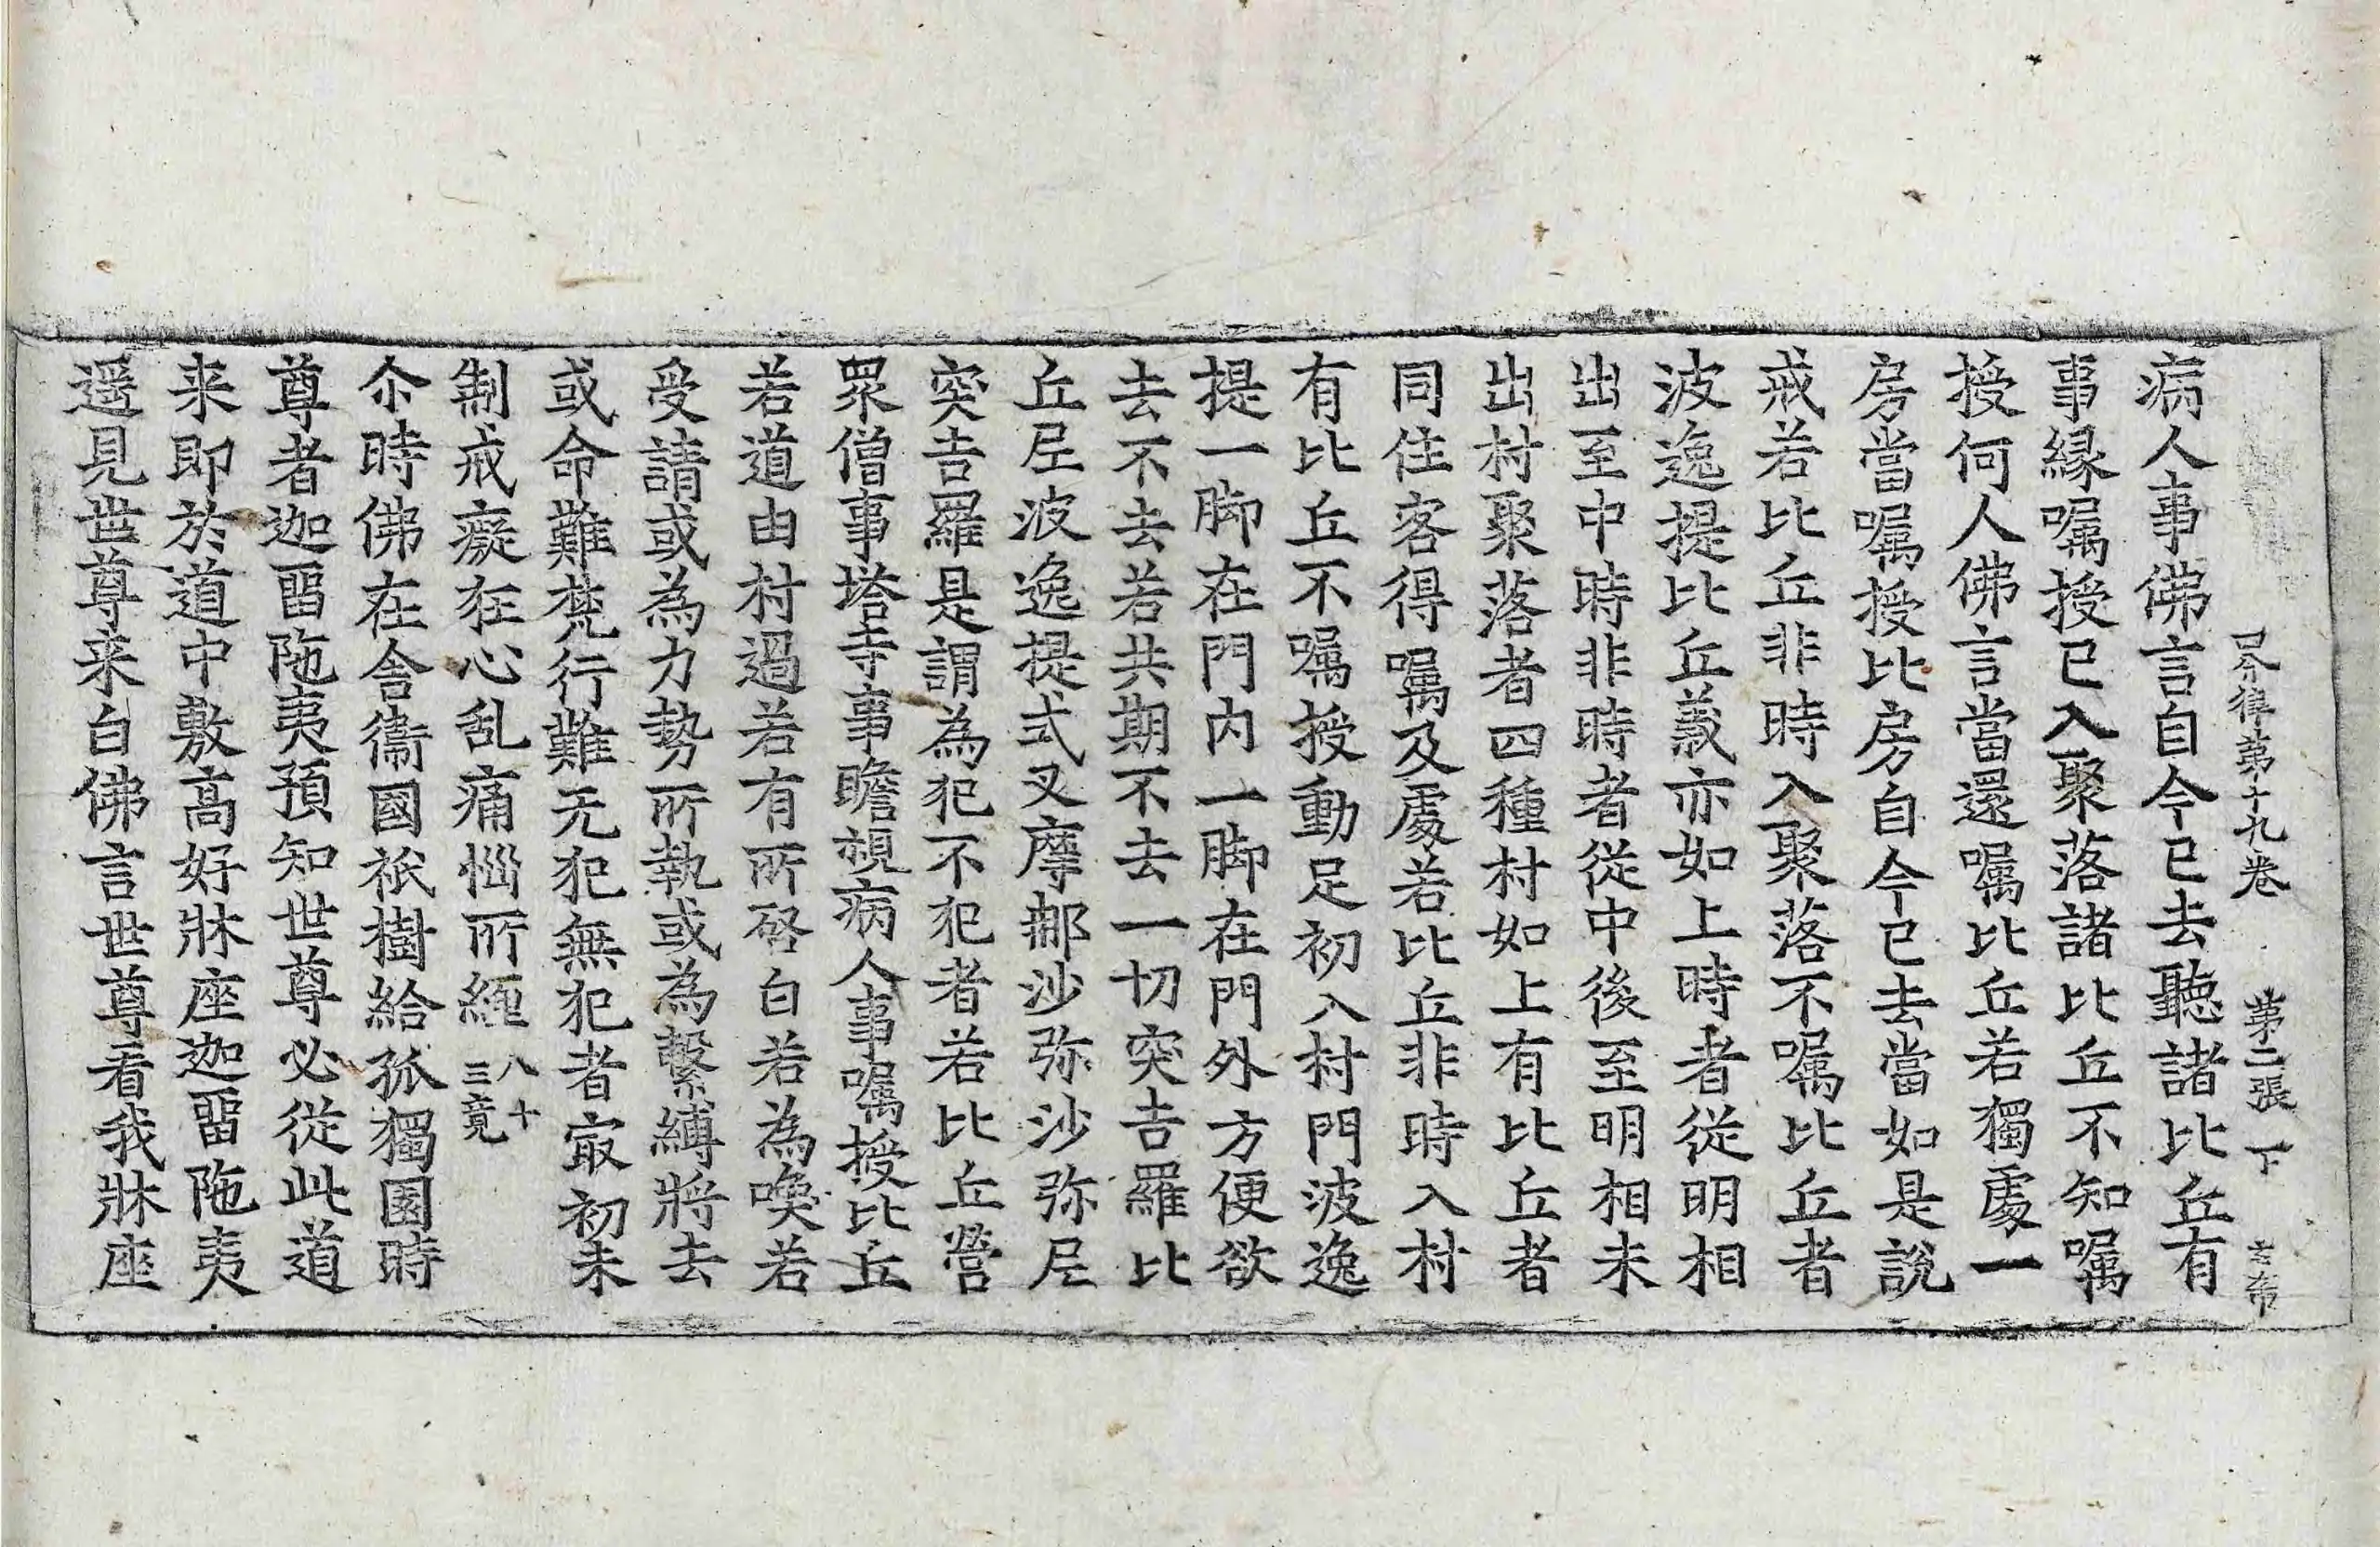 四分律第十九卷 第二張 下
病人事佛言自今已去聽諸比丘有
事縁囑授已入聚落諸比丘不知囑
授何人佛言當還囑比丘若獨處一
房當囑授比房自今已去當如是說
戒若比丘非時入聚落不囑比丘者
波逸提比丘義亦如上時者從明相
出至中時非時者從中後至明相未
出村聚落者四種村如上有比丘者
同住客得囑及處若比丘非時入村
有比丘不囑授動足初入村門波逸
提一脚在門内一脚在門外方便欲
去不去去若共期不去一切突吉羅比
丘尼波逸提式叉摩那沙弥沙弥尼
突吉羅是謂為犯不犯者若比丘營
眾僧事塔寺事瞻視病人事囑授比丘
若道由村過若有所啓白若為喚若
受請或為力勢所執或為繫縛將去
或命難梵行難无犯無犯者冣初未
制戒癡狂心乱痛惱所纏 八十三竟
尒時佛在舍衞國祇樹給孤獨園時
尊者迦留陁夷預知世尊必從此道
来即於道中敷髙好牀座迦留陁夷
遥見世尊来白佛言世尊看我牀座